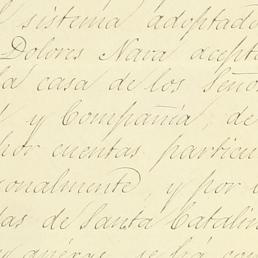 sistema adoptado
Dolores Nava acepta
a casa de los Seño
y Compañia, de
por cuentas particu
onalmente, y por
as de Santa Catalin
se há con